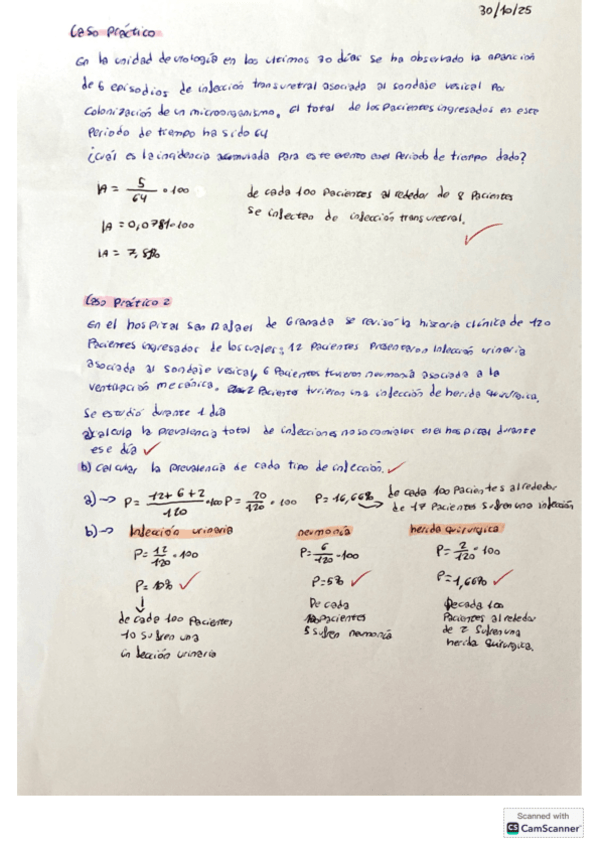 30/10/25
Caso Práctico
En la unidad de urología en los ultimos 30 días se ha observado la aparición
de 6 episodios de infección transuretral asociada al sondaje vesical por
colonización de un microorganismo. El total de los pacientes ingresados en este
periodo de tiempo ha sido 64
¿Cuál es la incidencia acumulada para este evento en el periodo de tiempo dado?
IA = 5/64 · 100
IA = 0,0781·100
IA = 7,81%
de cada 100 Pacientes al rededor de 8 Pacientes
se infectan de infección transuretral.
Caso Práctico 2
En el hospital San Rafael de Granada se revisó la historia clínica de 120
Pacientes ingresador de los cuales: 12 Pacientes Presentaron Infección urinaria
asociada al sondaje vesical, 6 Pacientes tuvieron neumonía asociada a la
ventilación mecánica. 2 Paciento tuvieron una infección de herida quirurgica.
Se estudió durante 1 día
a) calcula la prevalencia total de infecciones nosocomiales en el hospital durante
ese día
b) calcular la prevalencia de cada tipo de infección.
a) → P = 12+6+2/120 ·100 P = 20/120 · 100 P = 16,66% de cada 100 Pacientes al rededor
de 17 Pacientes sufren una infección
b) → Infección urinaria neumonía herida quirurgica
P = 12/120 · 100 P = 6/120 · 100 P = 2/120 · 100
P = 10% P = 5% P = 1,66%
de cada 100 Pacientes
10 sufren una
infección urinaria
De cada
Pacientes
5 sufren neumonía
De cada 100
Pacientes al rededor
de 2 sufren una
herida quirurgica.
Scanned with
CS CamScanner